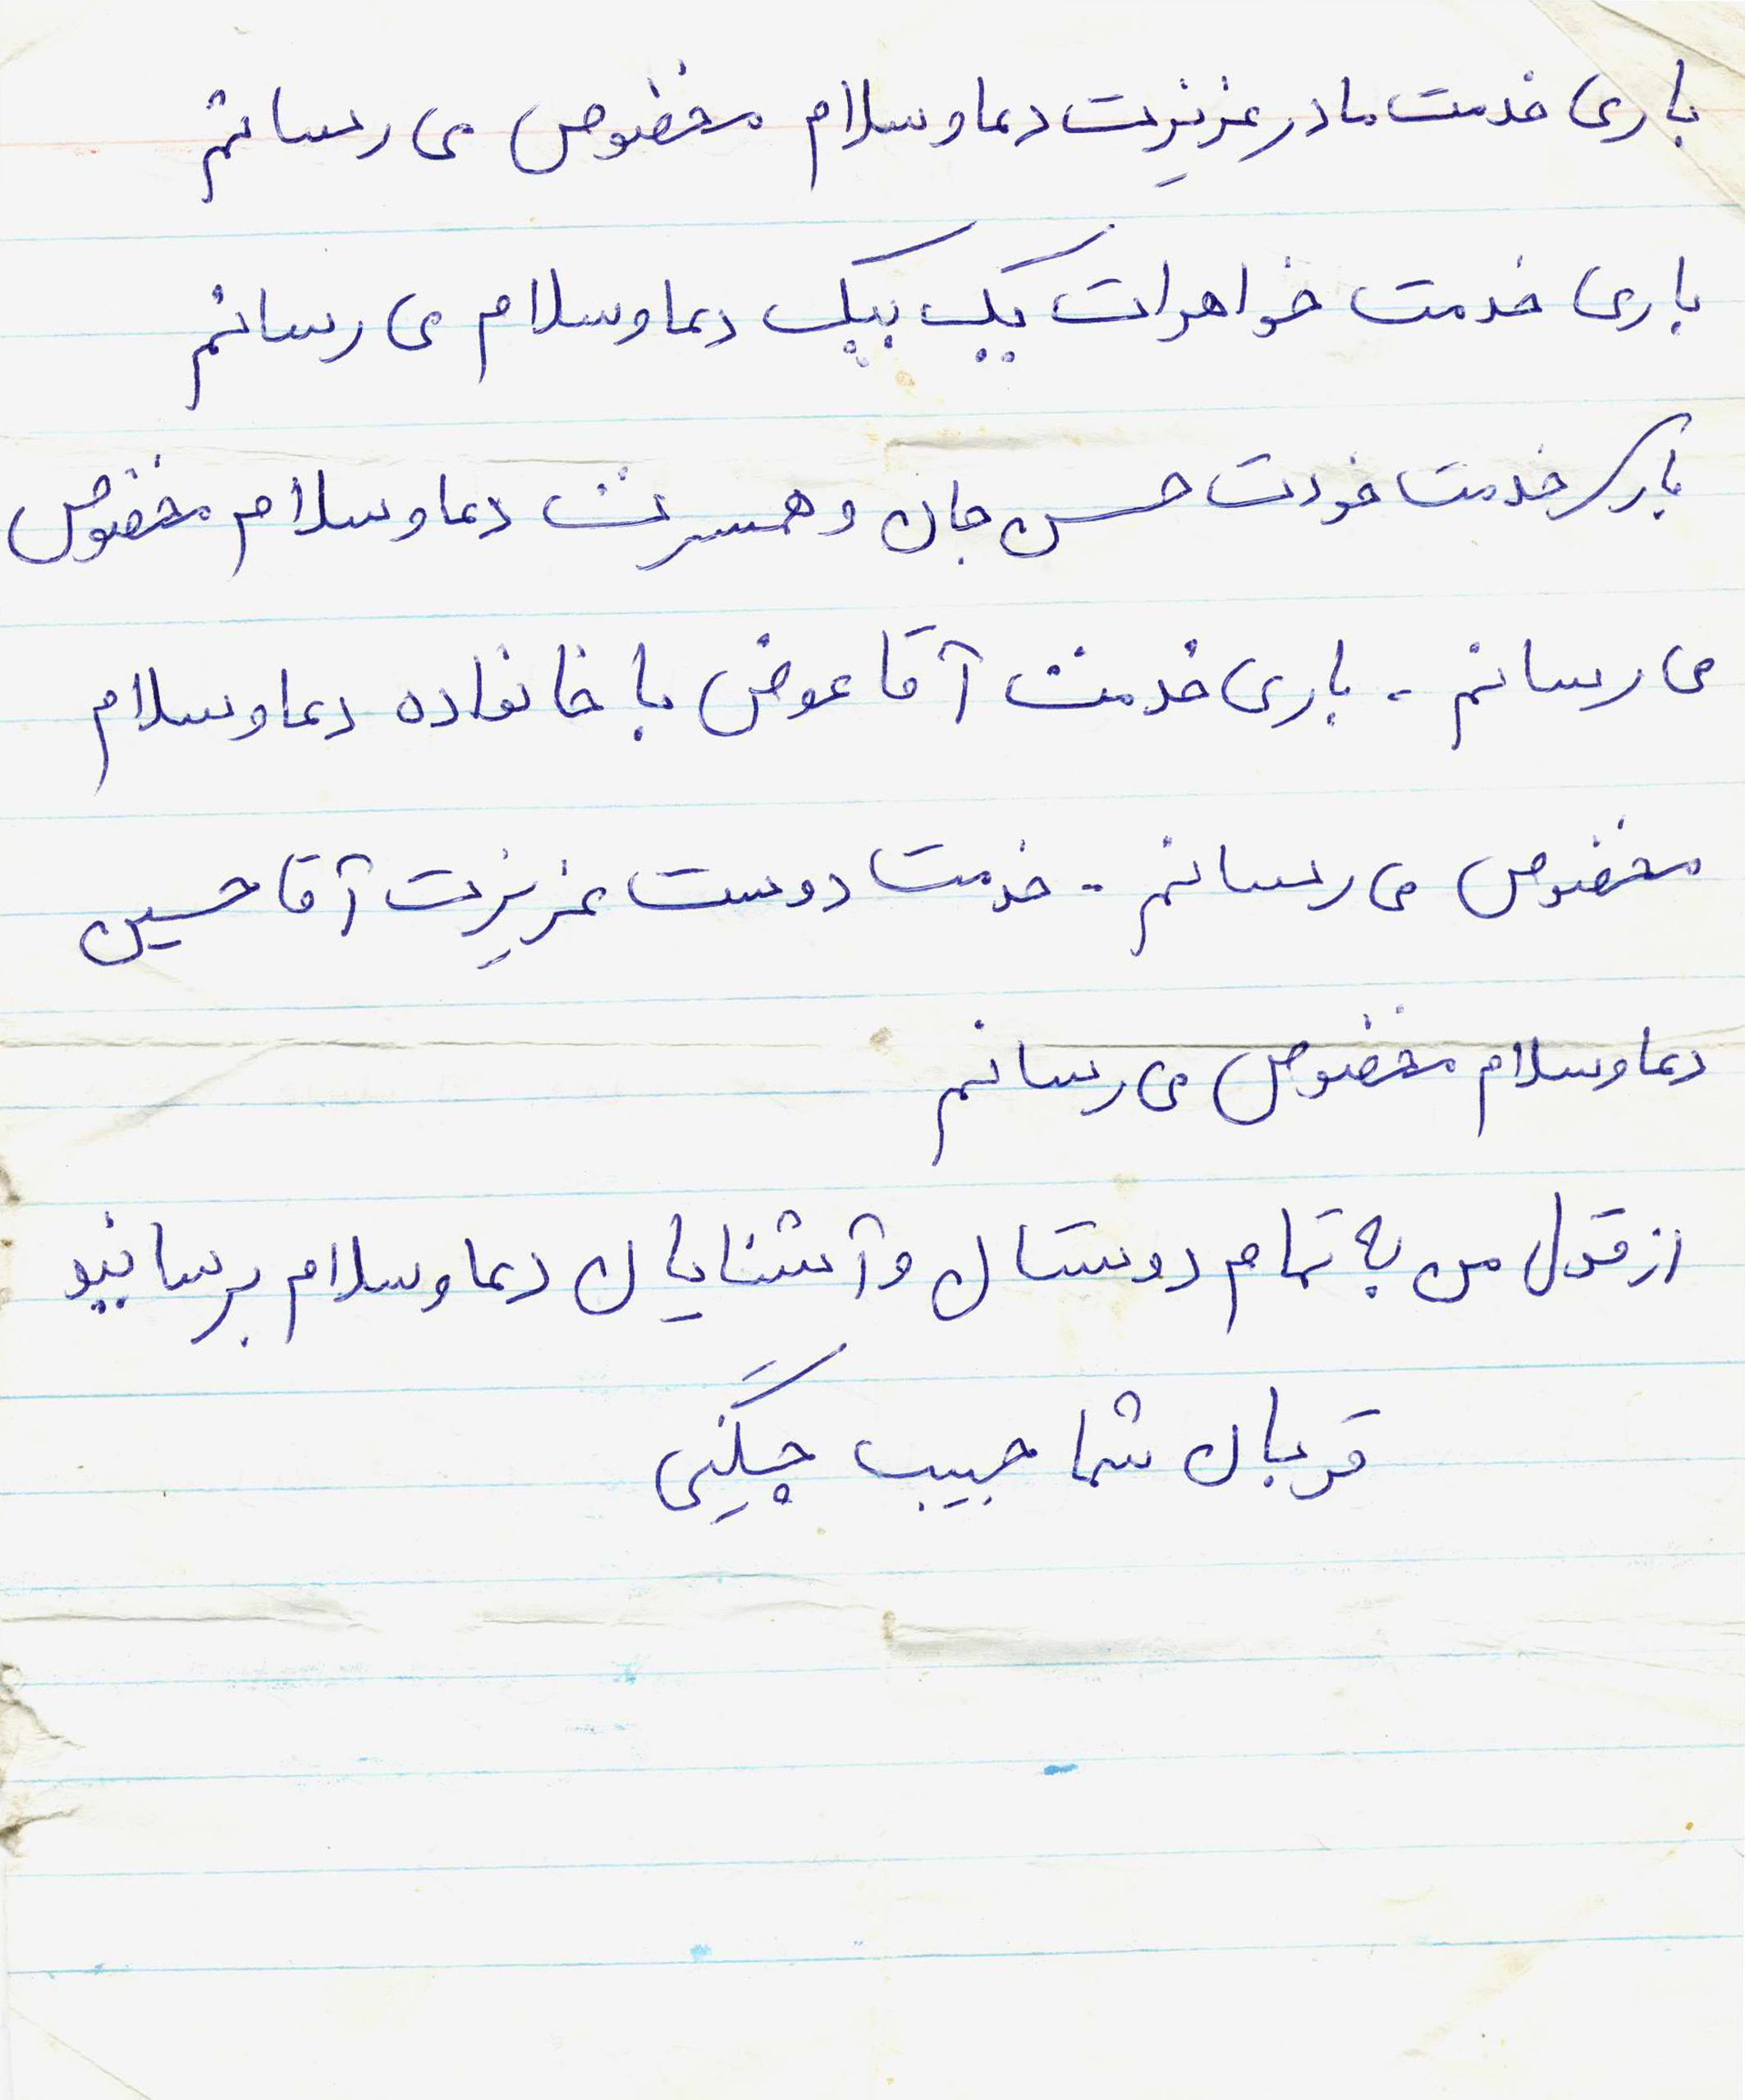 باری خدمت مادر عزیزت دعا و سلام مخصوص می رسانم
باری خدمت خواهرات یک بیک دعا و سلام می رسانم
باری خدمت خودت حسن جان و همسرت دعا و سلام مخصوص
می رسانم - باری خدمت آقا عوض با خانواده دعا و سلام
مخصوص می رسانم - خدمت دوست عزیزت آقا حسین
دعا و سلام مخصوص می رسانم
از قول من به تمام دوستان و آشنایان دعا و سلام برسانید
قربان شما حبیب چگنی